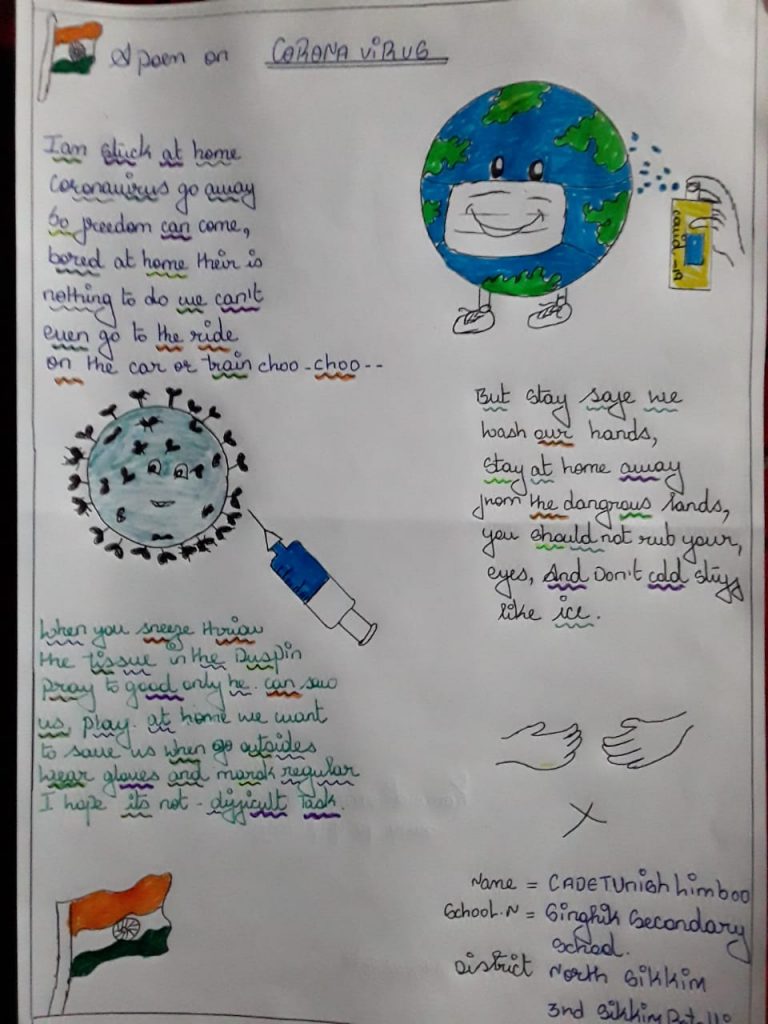 A poem on CORONA VIRUS
I am stuck at home
Coronavirus go away
So freedom can come,
bored at home their is
nothing to do we can't
even go to the ride
on the car or train choo-choo--
covid-19
But stay safe we
wash our hands,
stay at home away
from the dangrous hands,
you should not rub your,
eyes, And Don't cold
like ice.
When you sneeze
the tissue in the Duspin
pray to good only he. can
us, play. at home we want
to save us when go outsides
wear gloves and regular
I hope its not - difficult Task
Name = CADET
School.N = Singhik Secondary
School.
District North Sikkim
3nd Sikkim